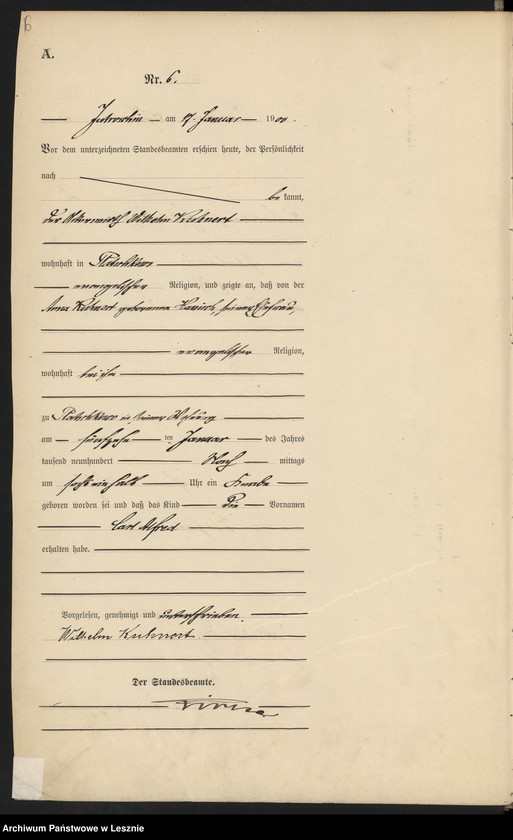 6
A.
Nr. 6.
Jutroschin am 17. Januar 1900.
Vor dem unterzeichneten Standesbeamten erschien heute, der Persönlichkeit
nach
be kannt,
der Wilhelm Kuhnert
wohnhaft in
evangelischer Religion, und zeigte an, daß von der
Anna Kuhnert geborenen seiner Ehefrau,
evangelischer Religion,
wohnhaft bei ihm
zu in seiner Wohnung
am fünfzehn ten Januar des Jahres
tausend neunhundert Nach mittags
um sechs ein halb Uhr ein Knabe
geboren worden sei und daß das Kind die Vornamen
Carl Alfred
erhalten habe.
Vorgelesen, genehmigt und unterschrieben.
Wilhelm Kuhnert
Der Standesbeamte.
Archiwum Państwowe w Lesznie